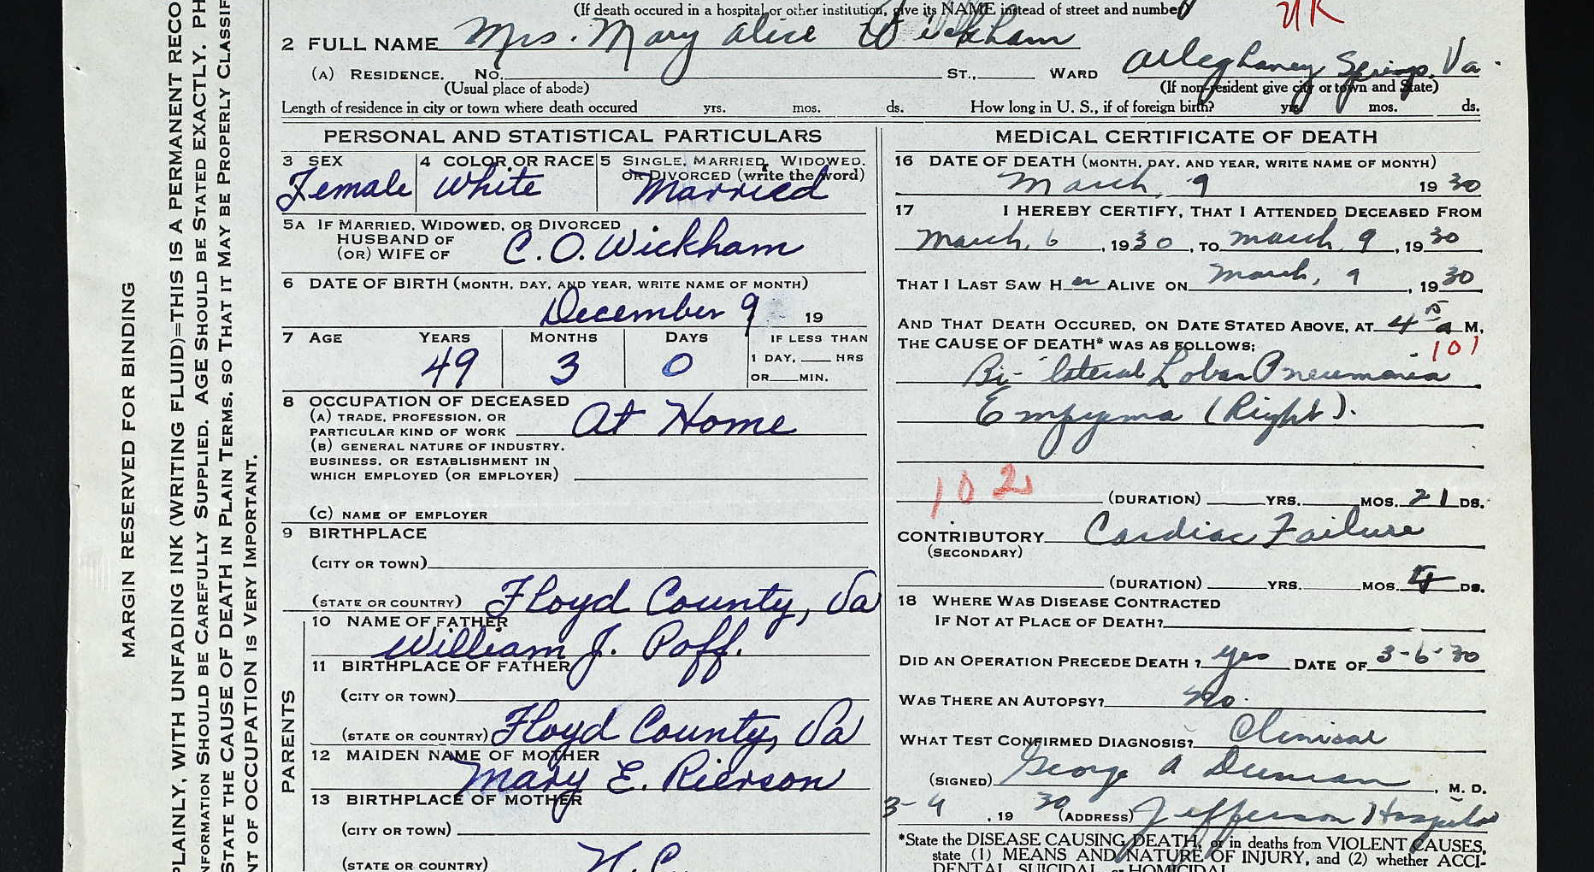 (If death occured in a hospital or other institution, give its NAME instead of street and number)
2 FULL NAME Mrs. Mary Alice Wickham
(A) RESIDENCE. No. ST., WARD Alleghaney Springs, Va.
(Usual place of abode) (If non-resident give city or town and State)
Length of residence in city or town where death occured yrs. mos. ds. How long in U. S., if of foreign birth? yrs. mos. ds.
PERSONAL AND STATISTICAL PARTICULARS
3 SEX 4 COLOR OR RACE 5 SINGLE, MARRIED, WIDOWED, OR DIVORCED (write the word)
Female White Married
5A IF MARRIED, WIDOWED, OR DIVORCED
HUSBAND OF
(OR) WIFE OF C. O. Wickham
6 DATE OF BIRTH (MONTH, DAY, AND YEAR, WRITE NAME OF MONTH)
December 9 19
7 AGE YEARS MONTHS DAYS IF LESS THAN
49 3 0 1 DAY, HRS
OR MIN.
8 OCCUPATION OF DECEASED
(A) TRADE, PROFESSION, OR
PARTICULAR KIND OF WORK At Home
(B) GENERAL NATURE OF INDUSTRY,
BUSINESS, OR ESTABLISHMENT IN
WHICH EMPLOYED (OR EMPLOYER)
(C) NAME OF EMPLOYER
9 BIRTHPLACE
(CITY OR TOWN)
(STATE OR COUNTRY) Floyd County, Va
10 NAME OF FATHER
William J. Poff.
11 BIRTHPLACE OF FATHER
(CITY OR TOWN)
(STATE OR COUNTRY) Floyd County, Va
12 MAIDEN NAME OF MOTHER
Mary E. Rierson
13 BIRTHPLACE OF MOTHER
(CITY OR TOWN)
(STATE OR COUNTRY) N.C.
PARENTS
MEDICAL CERTIFICATE OF DEATH
16 DATE OF DEATH (MONTH, DAY, AND YEAR, WRITE NAME OF MONTH)
March, 9 1930
17 I HEREBY CERTIFY, THAT I ATTENDED DECEASED FROM
March, 6, 1930, TO March 9, 1930
THAT I LAST SAW Her ALIVE ON March, 9, 1930
AND THAT DEATH OCCURED, ON DATE STATED ABOVE, AT 4 a M.
THE CAUSE OF DEATH* WAS AS FOLLOWS: 101
Bi-lateral Lobar Pneumonia
Empyema (Right).
102 (DURATION) YRS. MOS. 21 DS.
CONTRIBUTORY Cardiac Failure
(SECONDARY)
(DURATION) YRS. MOS. DS.
18 WHERE WAS DISEASE CONTRACTED
IF NOT AT PLACE OF DEATH?
DID AN OPERATION PRECEDE DEATH? yes DATE OF 3-6-30
WAS THERE AN AUTOPSY? no.
WHAT TEST CONFIRMED DIAGNOSIS? Clinical
(SIGNED) George A Duncan, M. D.
3-9, 1930 (ADDRESS) Jefferson Hospital
*State the DISEASE CAUSING DEATH, or in deaths from VIOLENT CAUSES,
state (1) MEANS AND NATURE OF INJURY, and (2) whether ACCI-
DENTAL, SUICIDAL, or HOMICIDAL
MARGIN RESERVED FOR BINDING
PLAINLY, WITH UNFADING INK (WRITING FLUID)=THIS IS A PERMANENT RECO
INFORMATION SHOULD BE CAREFULLY SUPPLIED. AGE SHOULD BE STATED EXACTLY. PH
STATE THE CAUSE OF DEATH IN PLAIN TERMS, SO THAT IT MAY BE PROPERLY CLASSIF
NT OF OCCUPATION IS VERY IMPORTANT.